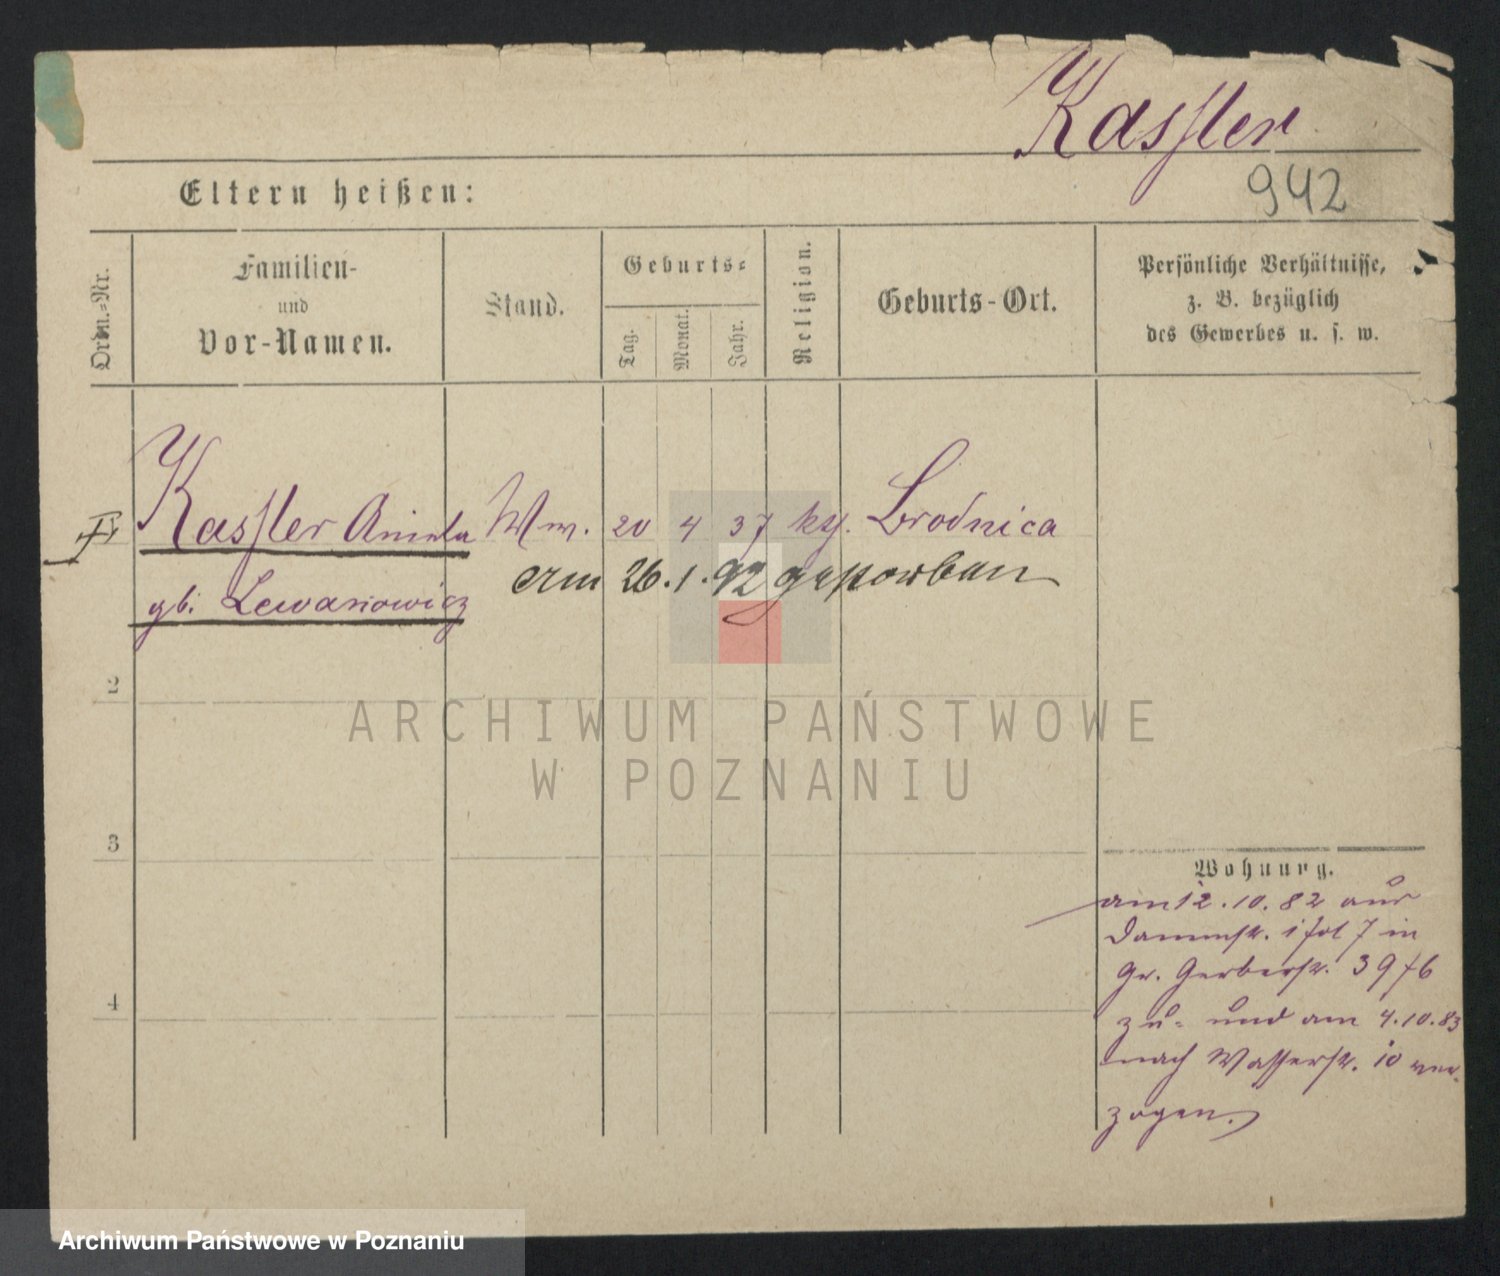 Kassler
942
Eltern heißen:
Ordn.-Nr.
Familien-
und
Vor-Namen.
Stand.
Geburts-
Tag.
Monat.
Jahr.
Religion.
Geburts-Ort.
Persönliche Verhältnisse,
z. B. bezüglich
des Gewerbes u. s. w.
Kassler Aniela Ww. 20 4 37 kh. Brodnica
Am 26.1.92 gestorben
gb. Lewandowicz
2
ARCHIWUM PAŃSTWOWE
W POZNANIU
3
Wohnung.
am 12.10.82 aus
Dammstr. 1 fol 7 in
Gr. Gerberstr. 39 f 6
zu- und am 4.10.83
4
nach Wasserstr. 10 ver-
zogen.
Archiwum Państwowe w Poznaniu